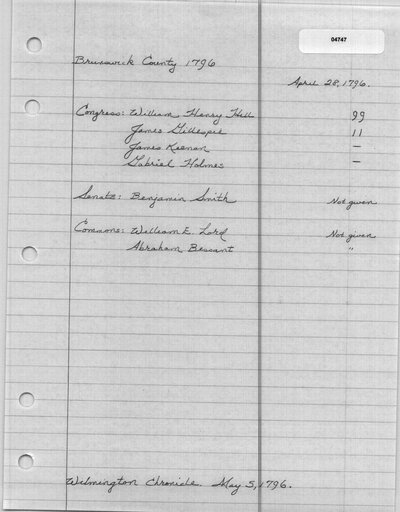 04747
Brunswick County 1796
April 28, 1796.
Congress: William Henry Hill 99
James Gillespie 11
James Keenan —
Gabriel Holmes —
Senate: Benjamin Smith Not given
Commons: William E. Lord Not given
Abraham Bessant "
Wilmington Chronicle. May 5, 1796.